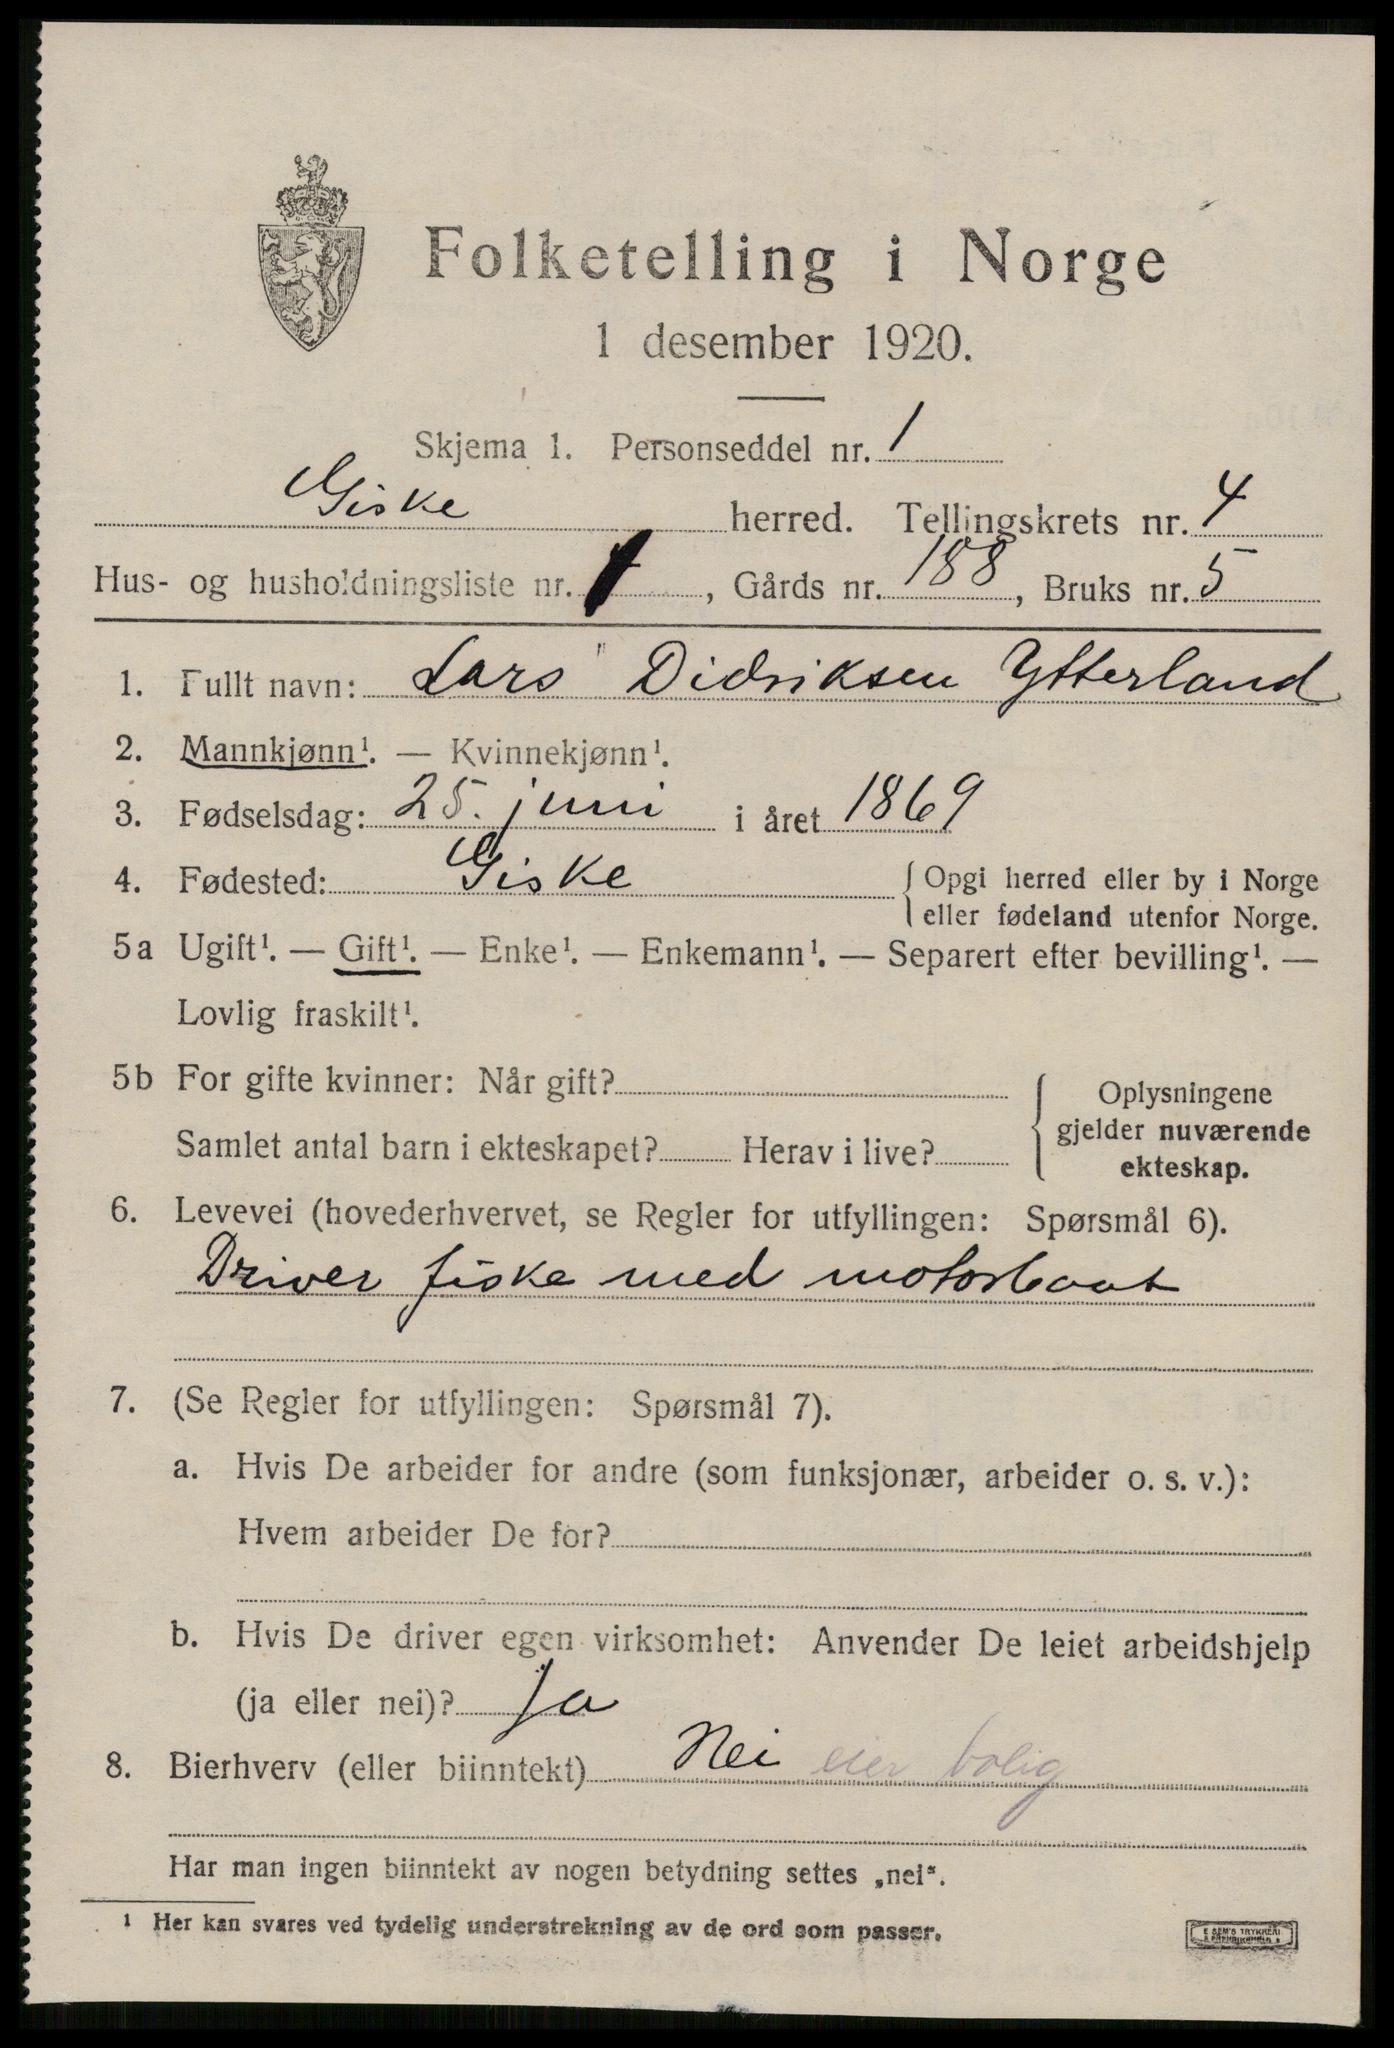 Folketelling i Norge
1 desember 1920.
Skjema 1. Personseddel nr. 1
Giske herred. Tellingskrets nr. 4
Hus- og husholdningsliste nr. 1, Gårds nr. 188, Bruks nr. 5
1. Fullt navn: Lars Didriksen Ytterland
2. Mannkjønn¹. — Kvinnekjønn¹.
3. Fødselsdag: 25. juni i året 1869
4. Fødested: Giske { Opgi herred eller by i Norge
eller fødeland utenfor Norge.
5a Ugift¹. — Gift¹. — Enke¹. — Enkemann¹. — Separert efter bevilling¹. —
Lovlig fraskilt¹.
5b For gifte kvinner: Når gift?
Samlet antal barn i ekteskapet? Herav i live?
Oplysningene
gjelder nuværende
ekteskap.
6. Levevei (hovederhvervet, se Regler for utfyllingen: Spørsmål 6).
Driver fiske med motorbaat
7. (Se Regler for utfyllingen: Spørsmål 7).
a. Hvis De arbeider for andre (som funksjonær, arbeider o. s. v.):
Hvem arbeider De for?
b. Hvis De driver egen virksomhet: Anvender De leiet arbeidshjelp
(ja eller nei)? Ja
8. Bierhverv (eller biinntekt) Nei eier bolig
Har man ingen biinntekt av nogen betydning settes „nei“.
¹ Her kan svares ved tydelig understrekning av de ord som passer.
SEM'S TRYKKERI
FREDRIKSHALD